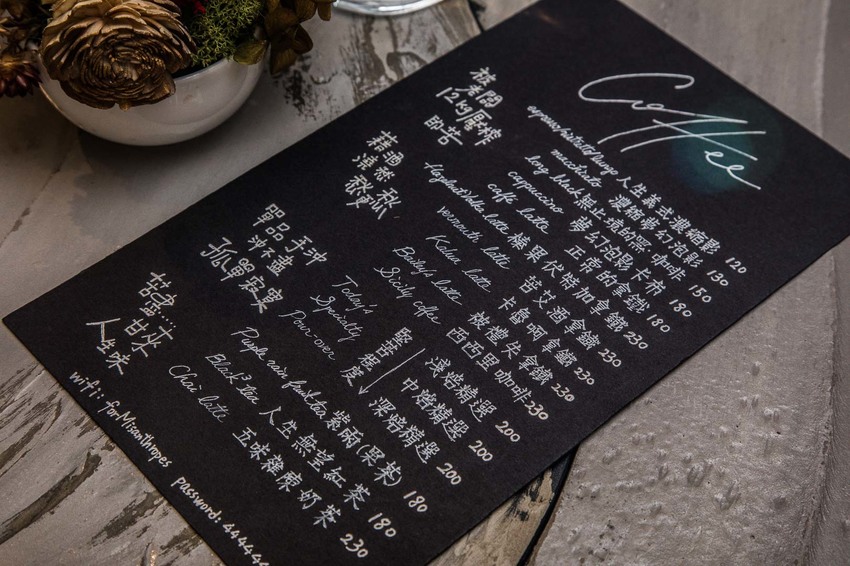 Coffee
被老闆
12kg壓榨
的苦
espresso/ristretto/lungo 人生義式濃縮影 120
macchiato 濃縮夢幻泡影 130
long black 無止境的黑咖啡 150
cappuccino 夢幻泡影卡布 180
caffe latte 正常的拿鐵 180
藉酒
澆愁
Hazelnut Vodka latte 榛果伏特加拿鐵 230
vermouth latte 苦艾酒拿鐵 230
Kalua latte 卡魯呵拿鐵 230
Bailey's latte 被禮失拿鐵 230
Sicily coffee 西西里咖啡 230
單品手沖
沖不盡
孤單寂寞
Today's
Specialty
Pour over
堅苦程度
淺焙精選 200
中焙精選 200
深焙精選 200
苦盡.... 甘來
人生味
Purple rain fruit tea 紫雨(果茶) 180
Black² tea 人生無望紅茶 180
Chai latte 五味雜陳奶茶 230
wifi: forMisanthropes password: 444444